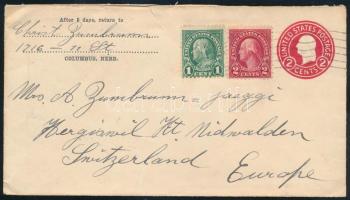 After 5 days, return to
Christ Zumbrunn
1716 - 11 St.
COLUMBUS, NEBR.
1 CENT 1
2 CENTS 2
UNITED STATES POSTAGE
2 CENTS 2
Mrs. A. Zumbrunn = Jaeggi
Hergiswil Kt Nidwalden
Switzerland
Europe